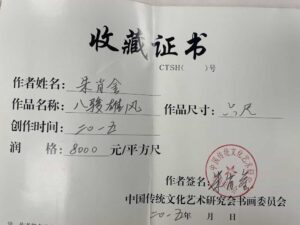 收藏证书
CTSH( )号
作者姓名：朱肖金
作品名称：八骏雄风 作品尺寸：六尺
创作时间：二〇一五
润 格：8000 元/平方尺
作者签名：
中国传统文化艺术研究会书画委员会
二〇一五年 月 日